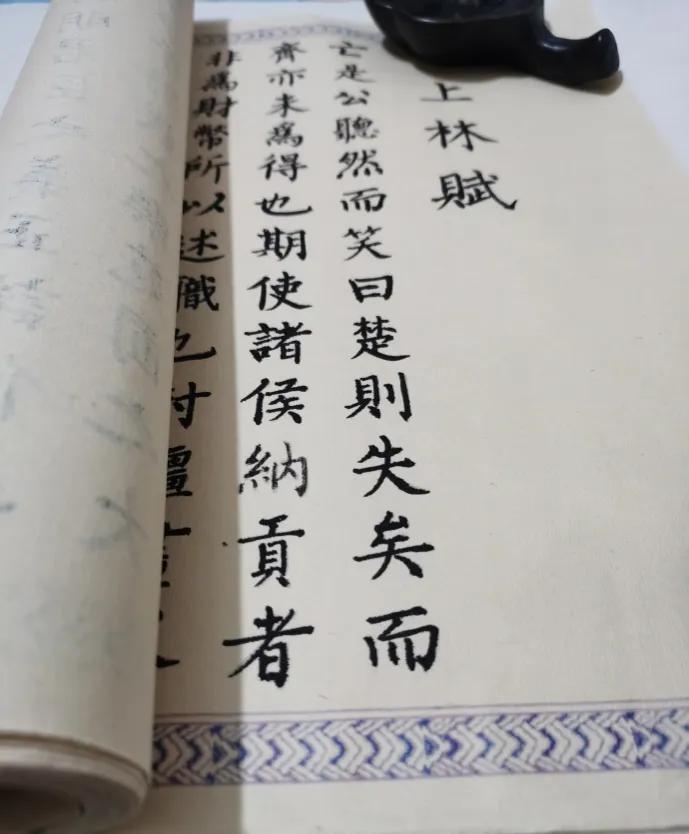 上林賦
亡是公聽然而笑曰楚則失矣而
齊亦未為得也期使諸侯納貢者
非為財幣所以述職也封疆